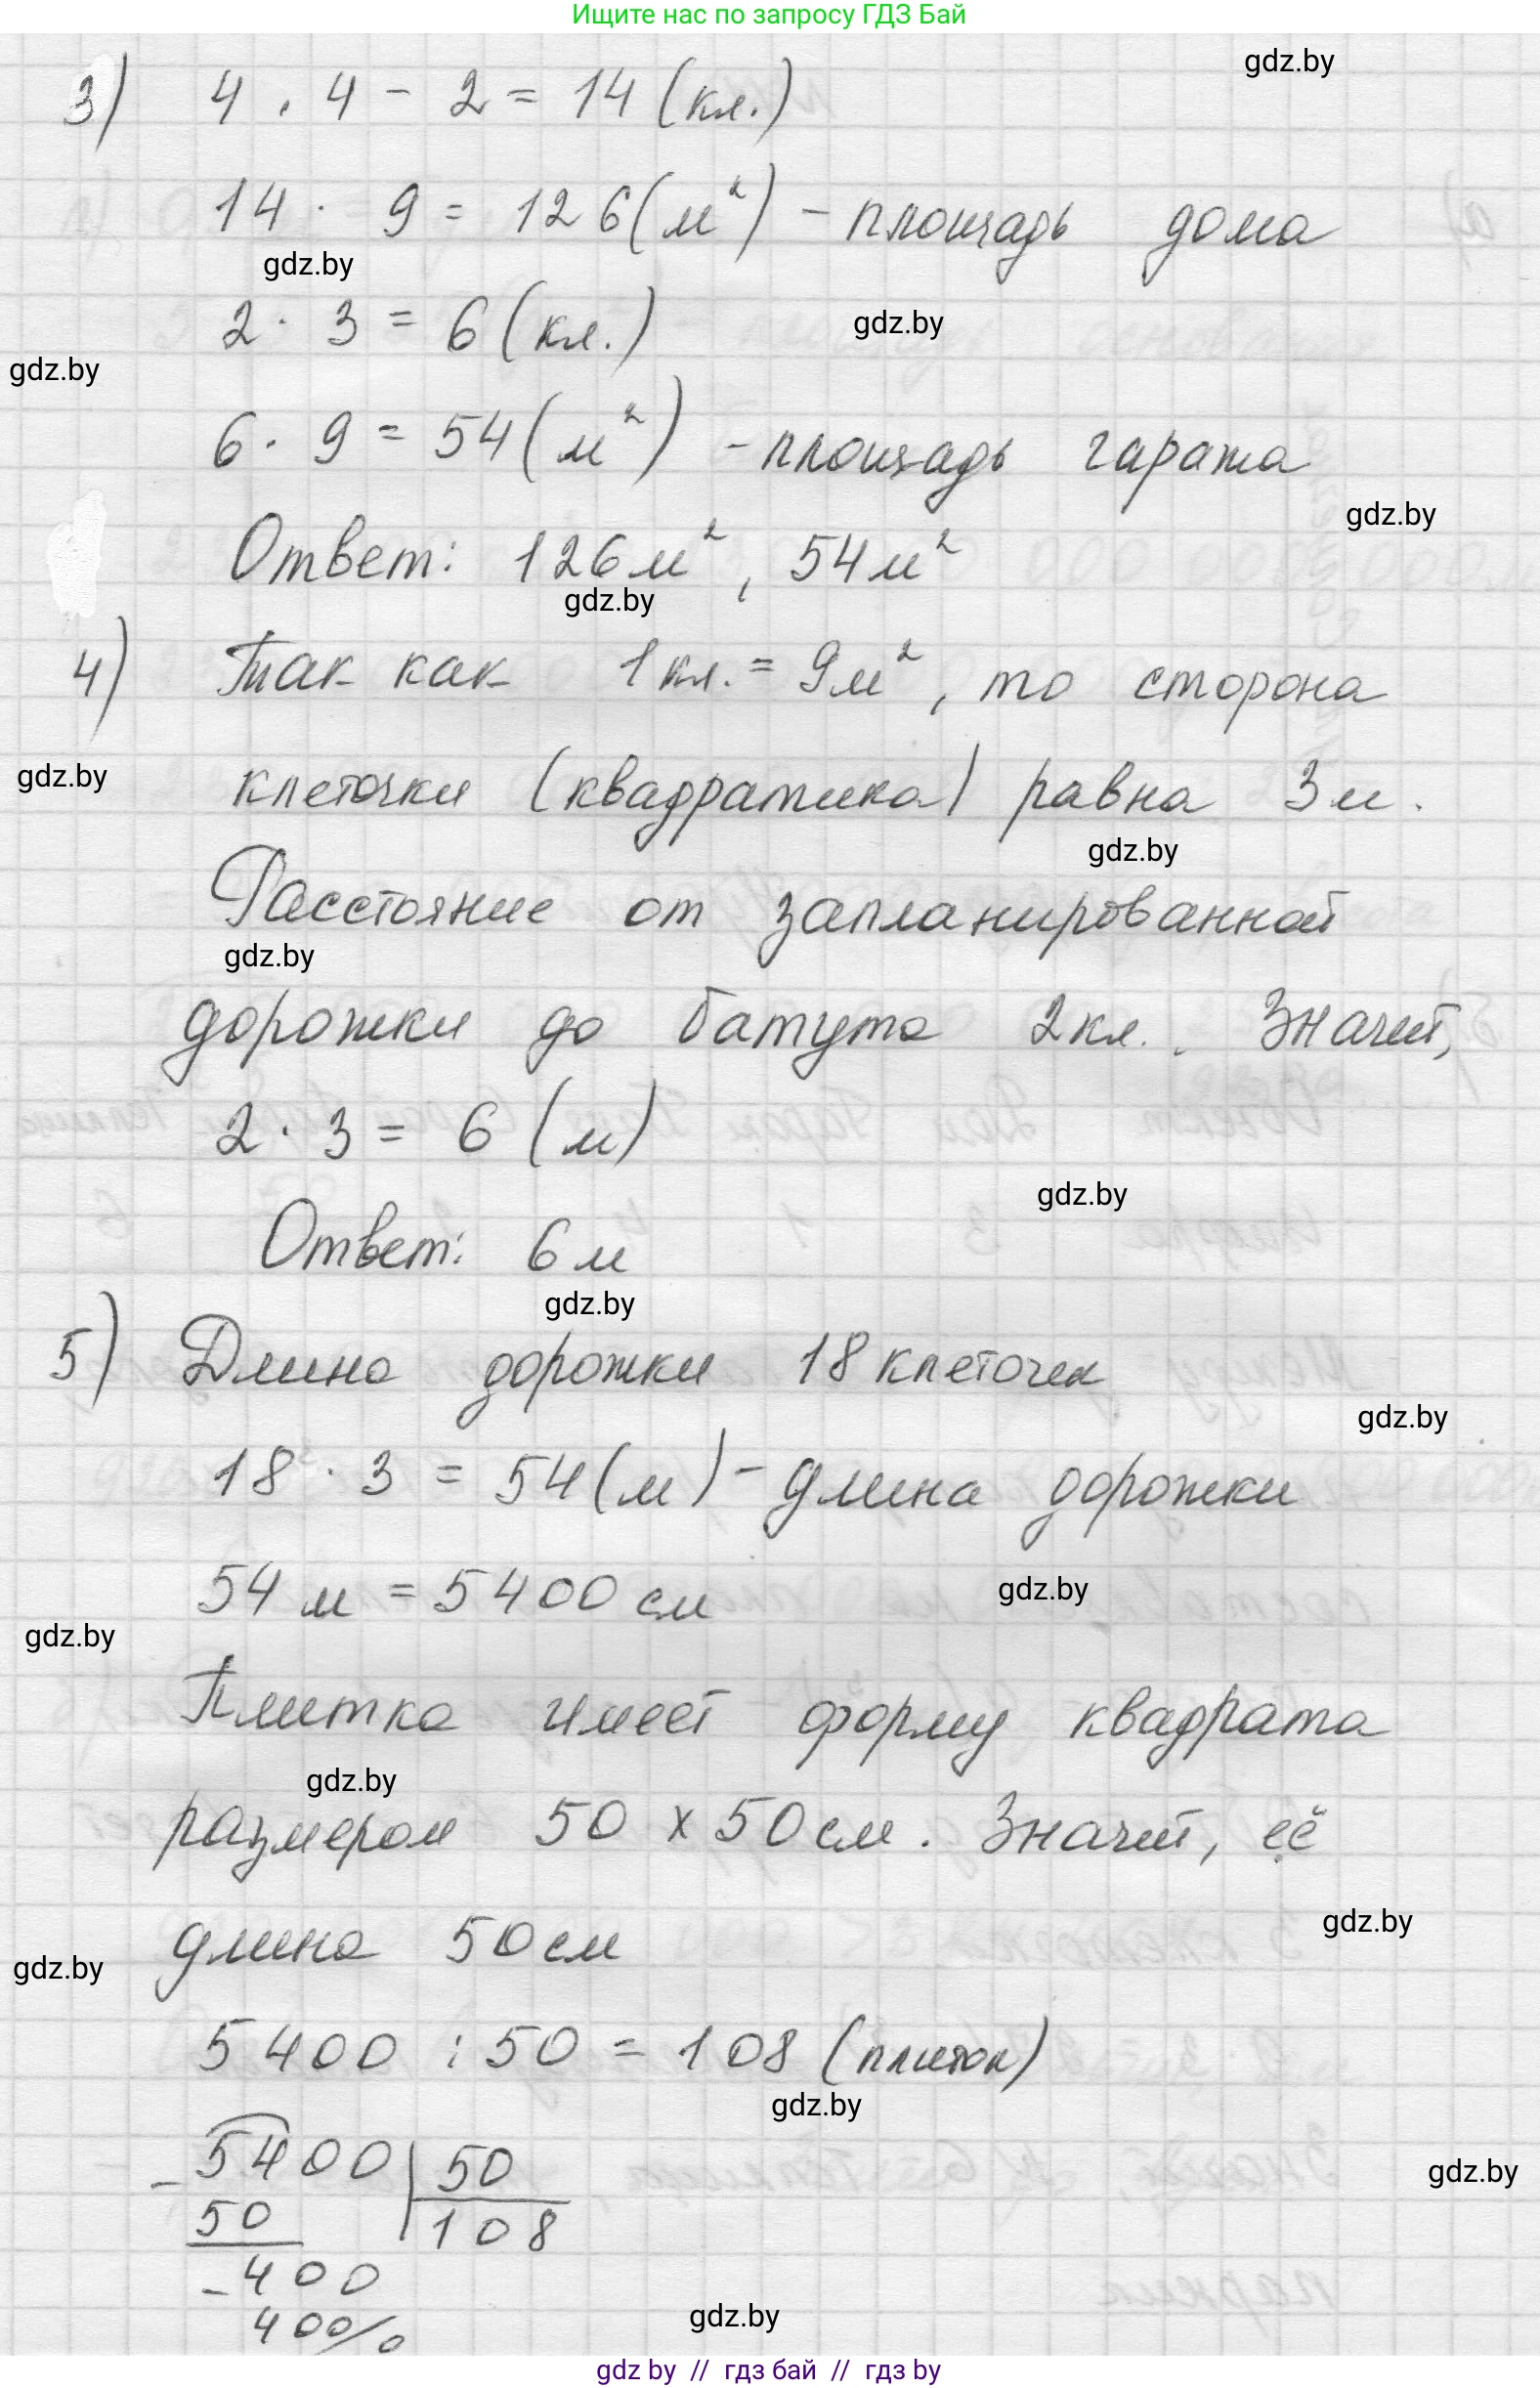 Ищите нас по запросу ГДЗ Бай
gdz.by
3) 4 · 4 - 2 = 14 (кл.)
14 · 9 = 126 (м²) - площадь дома
gdz.by
2 · 3 = 6 (кл.)
gdz.by
gdz.by
6 · 9 = 54 (м²) - площадь гаража
gdz.by
Ответ: 126 м², 54 м²
gdz.by
4) Так как 1 кл. = 9 м², то сторона
gdz.by
клеточки (квадратика) равна 3 м.
gdz.by
Расстояние от запланированной
gdz.by
дорожки до батута 2 кл. . Значит,
2 · 3 = 6 (м)
gdz.by
Ответ: 6 м
gdz.by
5) Длина дорожки 18 клеточек
gdz.by
18 · 3 = 54 (м) - длина дорожки
54 м = 5400 см
gdz.by
gdz.by
Плитка имеет форму квадрата
gdz.by
размером 50 x 50 см. Значит, её
gdz.by
длина 50 см
gdz.by
5400 : 50 = 108 (плиток)
gdz.by
- 5400 | 50
gdz.by
50 108
- 400
400
gdz.by
0
gdz by // гдз бай // гдз by